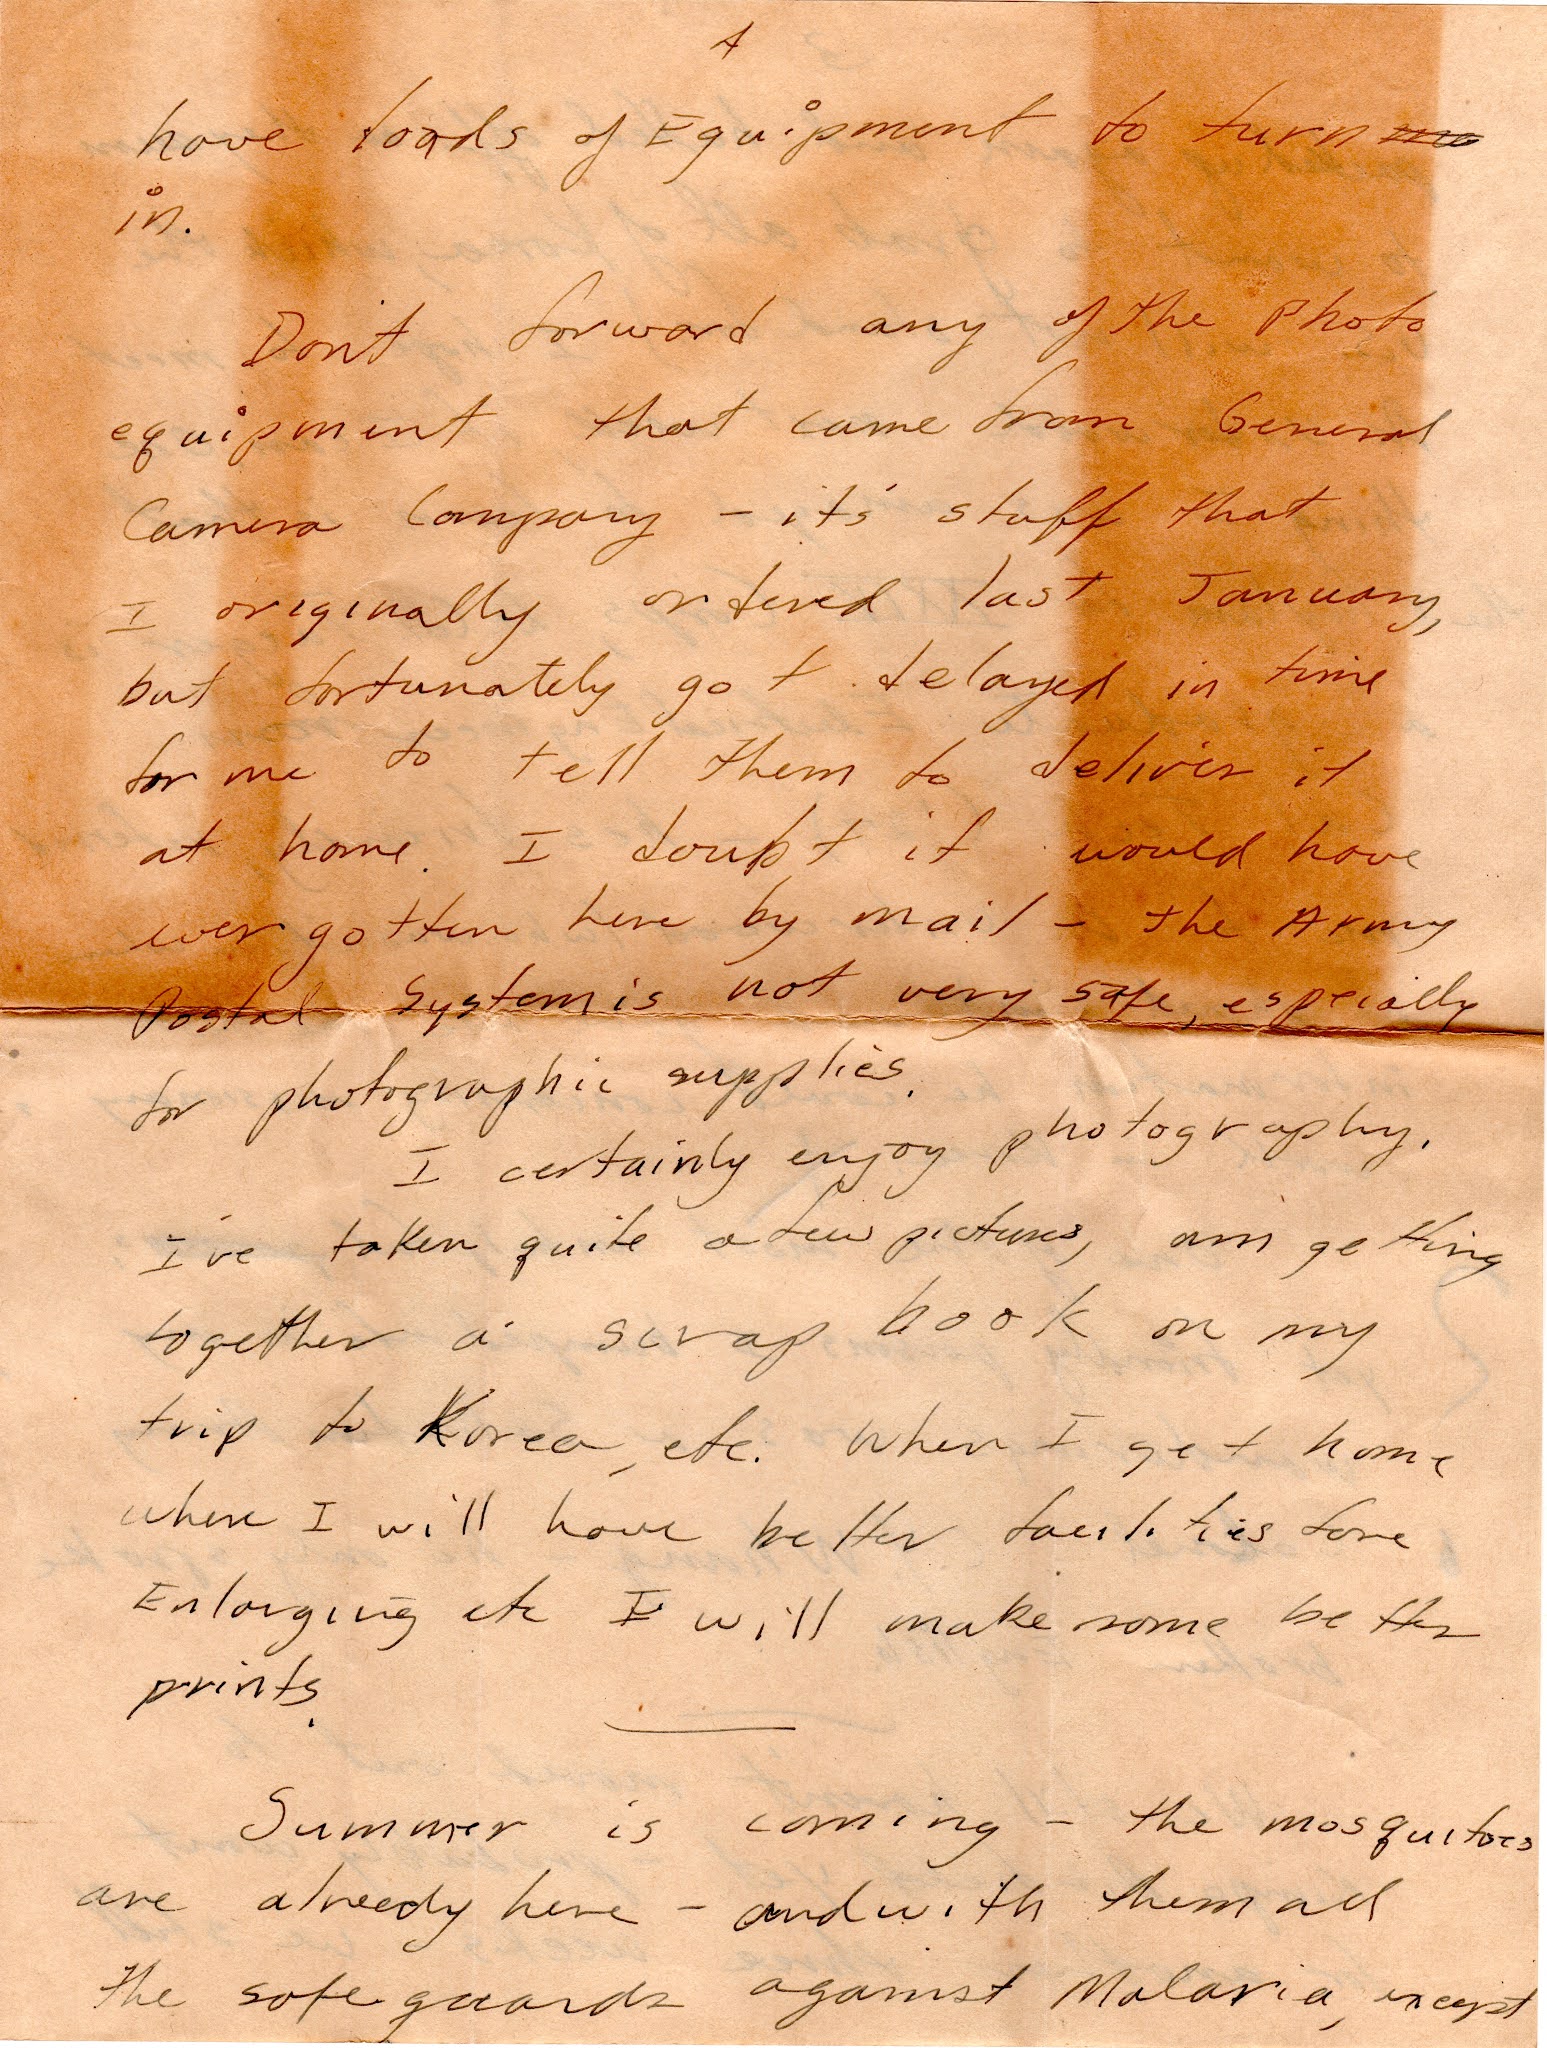 4
have loads of Equipment to turn
in.
Don't forward any of the Photo
equipment that came from General
Camera Company - it's stuff that
I originally ordered last January,
but fortunately got delayed in time
for me to tell them to deliver it
at home. I doubt it would have
ever gotten here by mail - the Army
Postal System is not very safe, especially
for photographic supplies.
I certainly enjoy photography.
I've taken quite a few pictures, am getting
together a scrap book on my
trip to Korea, etc. When I get home
where I will have better facilities fore
Enlarging etc I will make some better
prints.
Summer is coming - the mosquitoes
are already here - and with them all
the safe guards against Malaria, except